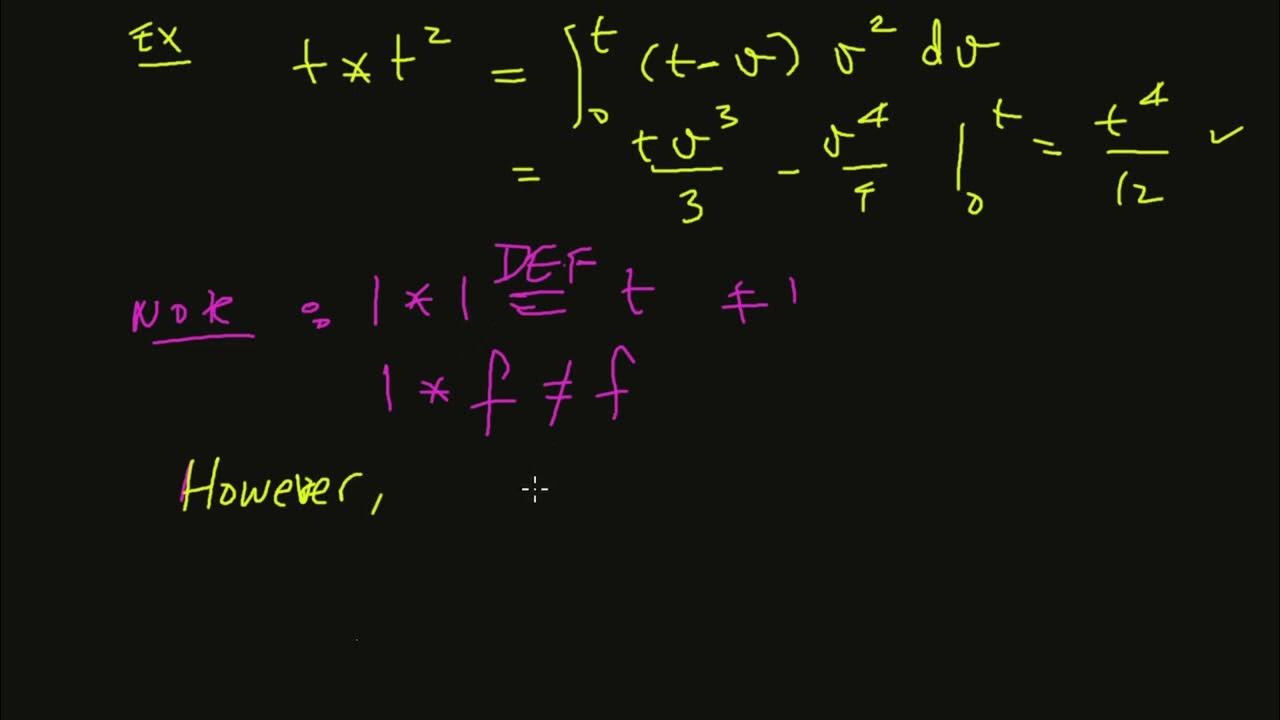 Ex t * t² = ∫₀ᵗ (t-v) v² dv
= tv³/3 - v⁴/4 |₀ᵗ = t⁴/12 ✓
Note : 1 * 1 DEF= t ≠ 1
1 * f ≠ f
However,